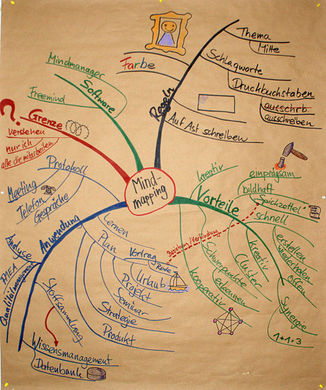 Mind-
mapping
Regeln
Thema
Mitte
Schlagworte
Druckbuchstaben
ausschreiben
Auf Ast schreiben
Farbe
Software
Mindmanager
Freemind
Grenze
?
verstehen
nur ich
alle die mitarbeiten
Anwendung
Protokoll
Meeting
Telefon
Gespräche
Analyse
Stoffsammlung
Wissensmanagement
Datenbank
Lernen
Plan
Vortrag
Urlaub
Projekt
Seminar
Strategie
Produkt
Vorteile
kreativ
einprägsam
bildhaft
Spickzettel
schnell
erstellen
wiederholen
offen
Synergie
1+1=3
kreativ
Cluster
erkennen
Schwerpunkte
kooperativ